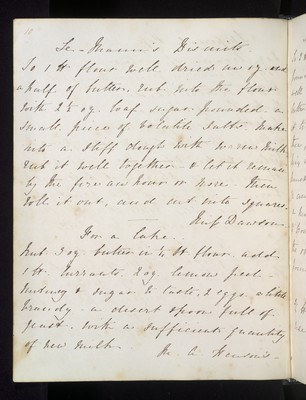 Biscuits
To 1 lb flour well dried an oz. and
a half of butter, rub into the flour
with 2½ oz. loaf sugar pounded a
small piece of Volatile Salts. make
into a stiff dough with warm Milk
rub it well together & let it remain
by the fire an hour or more. then
roll it out, and cut into squares.
Dawson
For a Cake.
Rub 3 oz. butter in ¾ lb flour, add
1 lb. Currants, 2 oz. lemon peel
Nutmeg & sugar to taste, 2 eggs, a little
brandy. a desert spoon full of
yeast. with a sufficient quantity
of new milk.